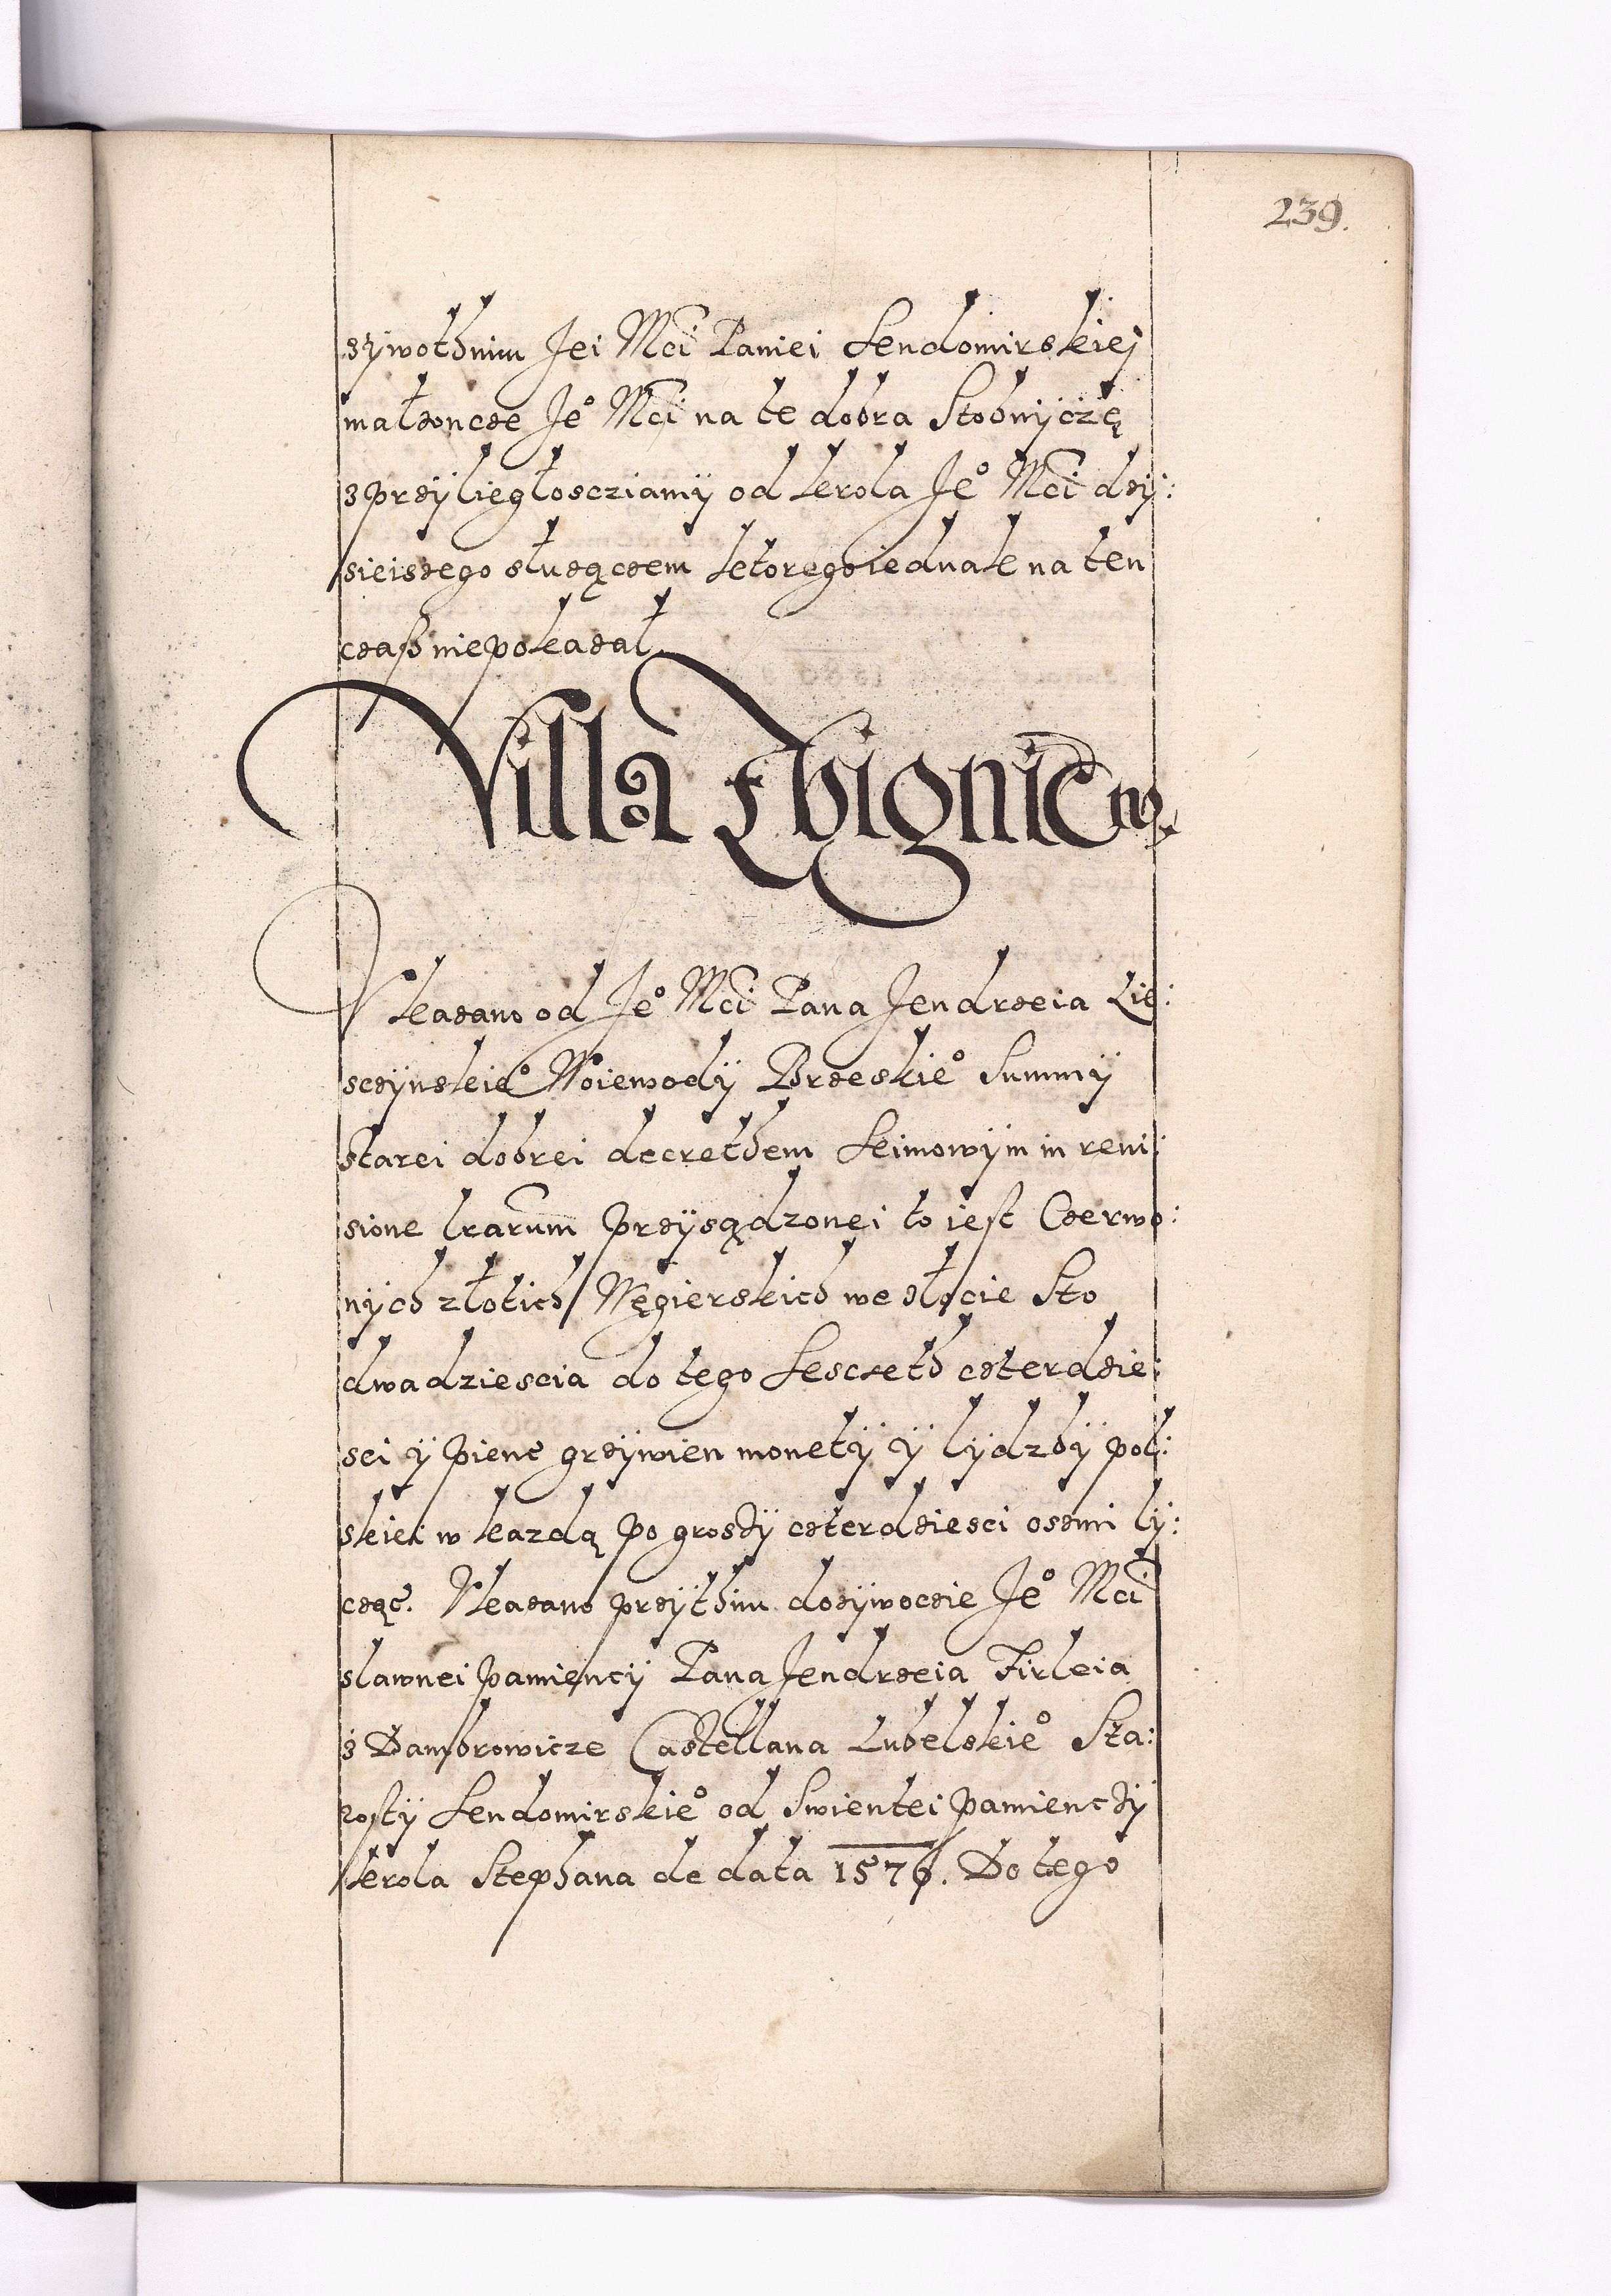 239.
zywothnim Jei Mći Paniei Sendomirskiej
małżoncze Je° Mći na te dobra Stobnÿczę
z przÿliegłoscziamÿ od krola Je° Mći dzÿ:
sieiszego służączem ktoregoiednak na ten
czaß niepokazał.
Villa
Ukazano od Je° Mći Pana Jendrzeia Lie:
sczÿnskie° Woiewodÿ Brzeskie° Summÿ
starei dobrei decrethem Seimowÿm in revi:
sione lrarum przÿsądzonei to iest Czerwo:
nÿch złotich Węgierskich we złocie Sto
dwadziescia do tego Sescseth czterdzie:
sci ÿ pienc grzÿwien monetÿ ÿ lÿdzbÿ pol:
skiei w kazdą po groszÿ czterdziesci osmi lÿ:
cząc. Ukazano przÿthim dozÿwoczie Je° Mći
slawnei pamiencÿ Pana Jendrzeia Firleia
z Dambrowicze Castellana Lubelskie° Sta:
rostÿ Sendomirskie° od Swientei pamienczÿ
krola Stephana de data 1576. Do tego